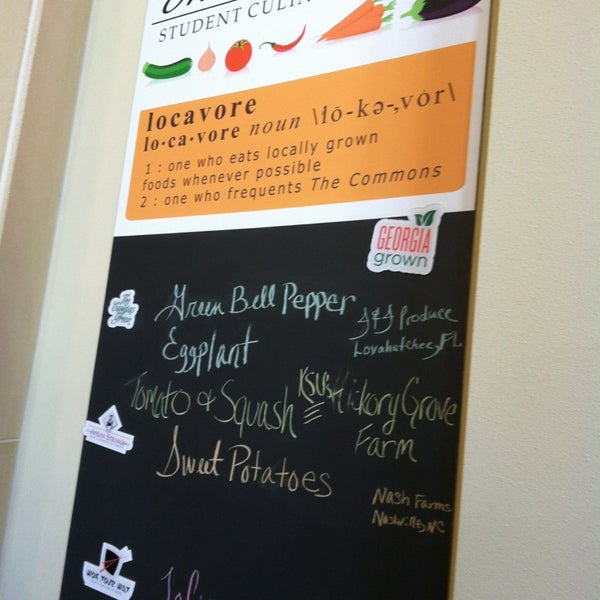 STUDENT CULIN
locavore
lo·ca·vore noun \lō-kə-ˌvȯr\
1 : one who eats locally grown
foods whenever possible
2 : one who frequents The Commons
GEORGIA
grown
Green Bell Pepper
J & J Produce
Eggplant
Loxahatchee, FL
Tomato & Squash KSU's Hickory Grove
Farm
Sweet Potatoes
Nash Farms
Nashville, NC
WOK YOUR WAY